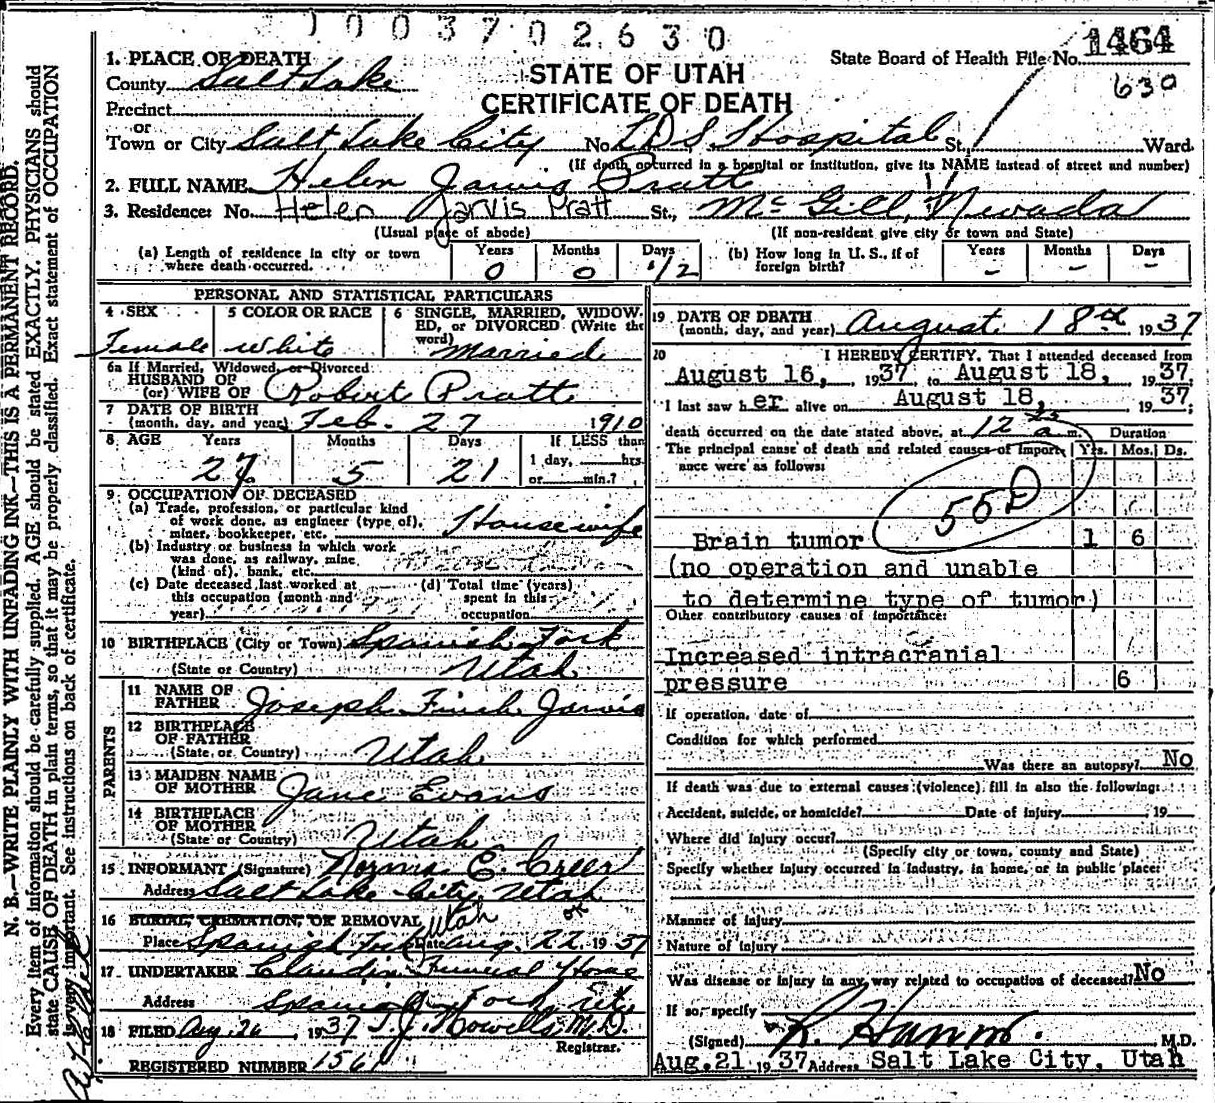 1003702630
1. PLACE OF DEATH
State Board of Health File No. 1464
630
County Salt Lake
STATE OF UTAH
CERTIFICATE OF DEATH
Precinct
or
Town or City Salt Lake City No. L.D.S. Hospital St., Ward.
(If death occurred in a hospital or institution, give its NAME instead of street and number)
2. FULL NAME Helen Jarvis Pratt
3. Residence: No. Helen Jarvis Pratt St., McGill, Nevada
(Usual place of abode) (If non-resident give city or town and State)
(a) Length of residence in city or town where death occurred. Years 0 Months 0 Days 1/2
(b) How long in U. S., if of foreign birth? Years - Months - Days -
PERSONAL AND STATISTICAL PARTICULARS
4 SEX Female
5 COLOR OR RACE White
6 SINGLE, MARRIED, WIDOWED, or DIVORCED (Write the word) Married
6a If Married, Widowed, or Divorced
HUSBAND OF
(or) WIFE OF Robert Pratt
7 DATE OF BIRTH
(month, day, and year) Feb. 27 1910
8 AGE Years 27 Months 5 Days 21
If LESS than 1 day, hrs. or min.?
9 OCCUPATION OF DECEASED
(a) Trade, profession, or particular kind of work done, as engineer (type of), miner, bookkeeper, etc. Housewife
(b) Industry or business in which work was done, as railway, mine (kind of), bank, etc.
(c) Date deceased last worked at this occupation (month and year)
(d) Total time (years) spent in this occupation
10 BIRTHPLACE (City or Town) Spanish Fork
(State or Country) Utah
PARENTS
11 NAME OF FATHER Joseph Finch Jarvis
12 BIRTHPLACE OF FATHER
(State or Country) Utah
13 MAIDEN NAME OF MOTHER Jane Evans
14 BIRTHPLACE OF MOTHER
(State or Country) Utah
15 INFORMANT (Signature) Norma E. Creer
Address Salt Lake City Utah
16 BURIAL, CREMATION, OR REMOVAL Utah
Place Spanish Fork Date Aug. 22 1937
17 UNDERTAKER Claudin Funeral Home
Address Spanish Fork, Utah
18 FILED Aug. 26 1937 T.J. Howells M.D.
Registrar.
REGISTERED NUMBER 1561
19 DATE OF DEATH
(month, day, and year) August 18 1937
20 I HEREBY CERTIFY, That I attended deceased from
August 16, 1937 to August 18, 1937;
I last saw her alive on August 18, 1937;
death occurred on the date stated above, at 12 a m. Duration
The principal cause of death and related causes of importance were as follows: Yrs. Mos. Ds.
55D
Brain tumor 1 6
(no operation and unable
to determine type of tumor)
Other contributory causes of importance:
Increased intracranial
pressure 6
If operation, date of
Condition for which performed
Was there an autopsy? No
If death was due to external causes (violence) fill in also the following:
Accident, suicide, or homicide? Date of injury 19
Where did injury occur?
(Specify city or town, county and State)
Specify whether injury occurred in industry, in home, or in public place:
Manner of injury
Nature of injury
Was disease or injury in any way related to occupation of deceased? No
If so, specify
(Signed) M.D.
Aug. 21 1937 Address Salt Lake City, Utah
N. B.—WRITE PLAINLY WITH UNFADING INK—THIS IS A PERMANENT RECORD.
Every item of information should be carefully supplied. AGE should be stated EXACTLY. PHYSICIANS should
state CAUSE OF DEATH in plain terms, so that it may be properly classified. Exact statement of OCCUPATION
is very important. See instructions on back of certificate.